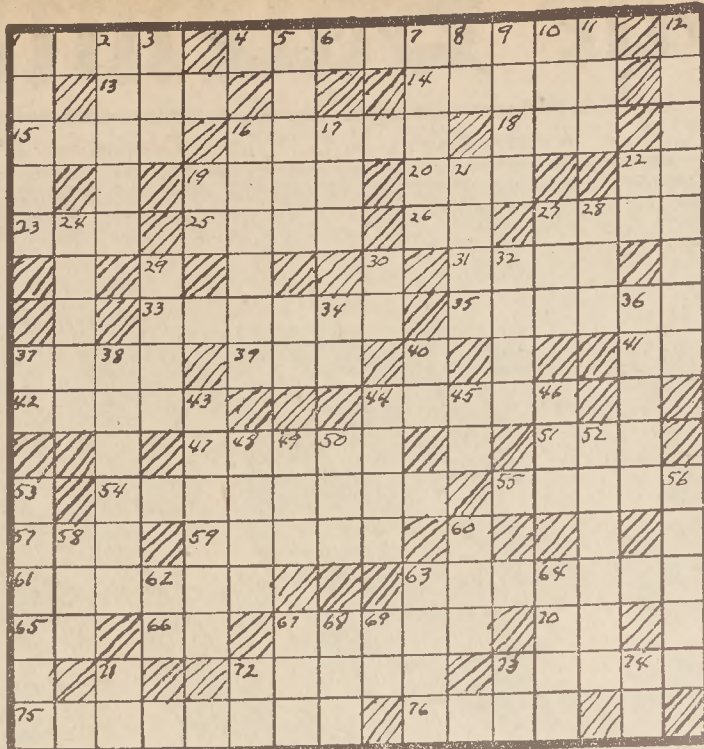 1 2 3 4 5 6 7 8 9 10 11 12
13 14
15 16 17 18
19 20 21 22
23 24 25 26 27 28
29 30 31 32
33 34 35 36
37 38 39 40 41
42 43 44 45 46
47 48 49 50 51 52
53 54 55 56
57 58 59 60
61 62 63 64
65 66 67 68 69 70
71 72 73 74
75 76